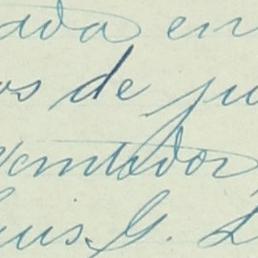 ada en
os de ju
Contador,
Luis G. L